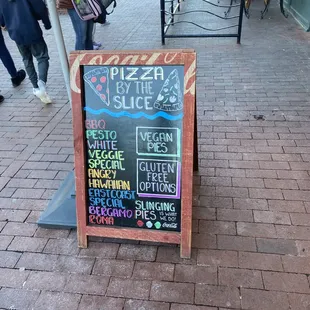 Coca-Cola
PIZZA
BY THE
SLICE
BBQ
PESTO
WHITE
VEGGIE
SPECIAL
ANGRY
HAWAIIAN
EASTCOAST
SPECIAL
BERGAMO
ROMA
VEGAN
PIES
GLUTEN
FREE
OPTIONS
SLINGING
PIES IS WHAT
WE DO
Coca-Cola